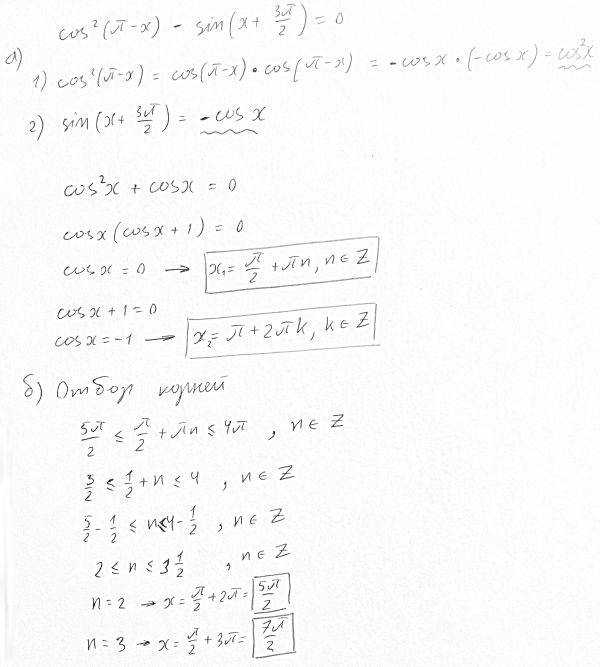 cos²(π-x) - sin(x + 3π/2) = 0
а)
1) cos²(π-x) = cos(π-x)·cos(π-x) = -cosx·(-cosx) = cos²x
2) sin(x + 3π/2) = -cosx
cos²x + cosx = 0
cosx(cosx + 1) = 0
cosx = 0 → x₁ = π/2 + πn, n ∈ Z
cosx + 1 = 0
cosx = -1 → x₂ = π + 2πk, k ∈ Z
б) Отбор корней
5π/2 ≤ π/2 + πn ≤ 4π , n ∈ Z
5/2 ≤ 1/2 + n ≤ 4 , n ∈ Z
5/2 - 1/2 ≤ n ≤ 4 - 1/2 , n ∈ Z
2 ≤ n ≤ 3 1/2 , n ∈ Z
n = 2 → x = π/2 + 2π = 5π/2
n = 3 → x = π/2 + 3π = 7π/2